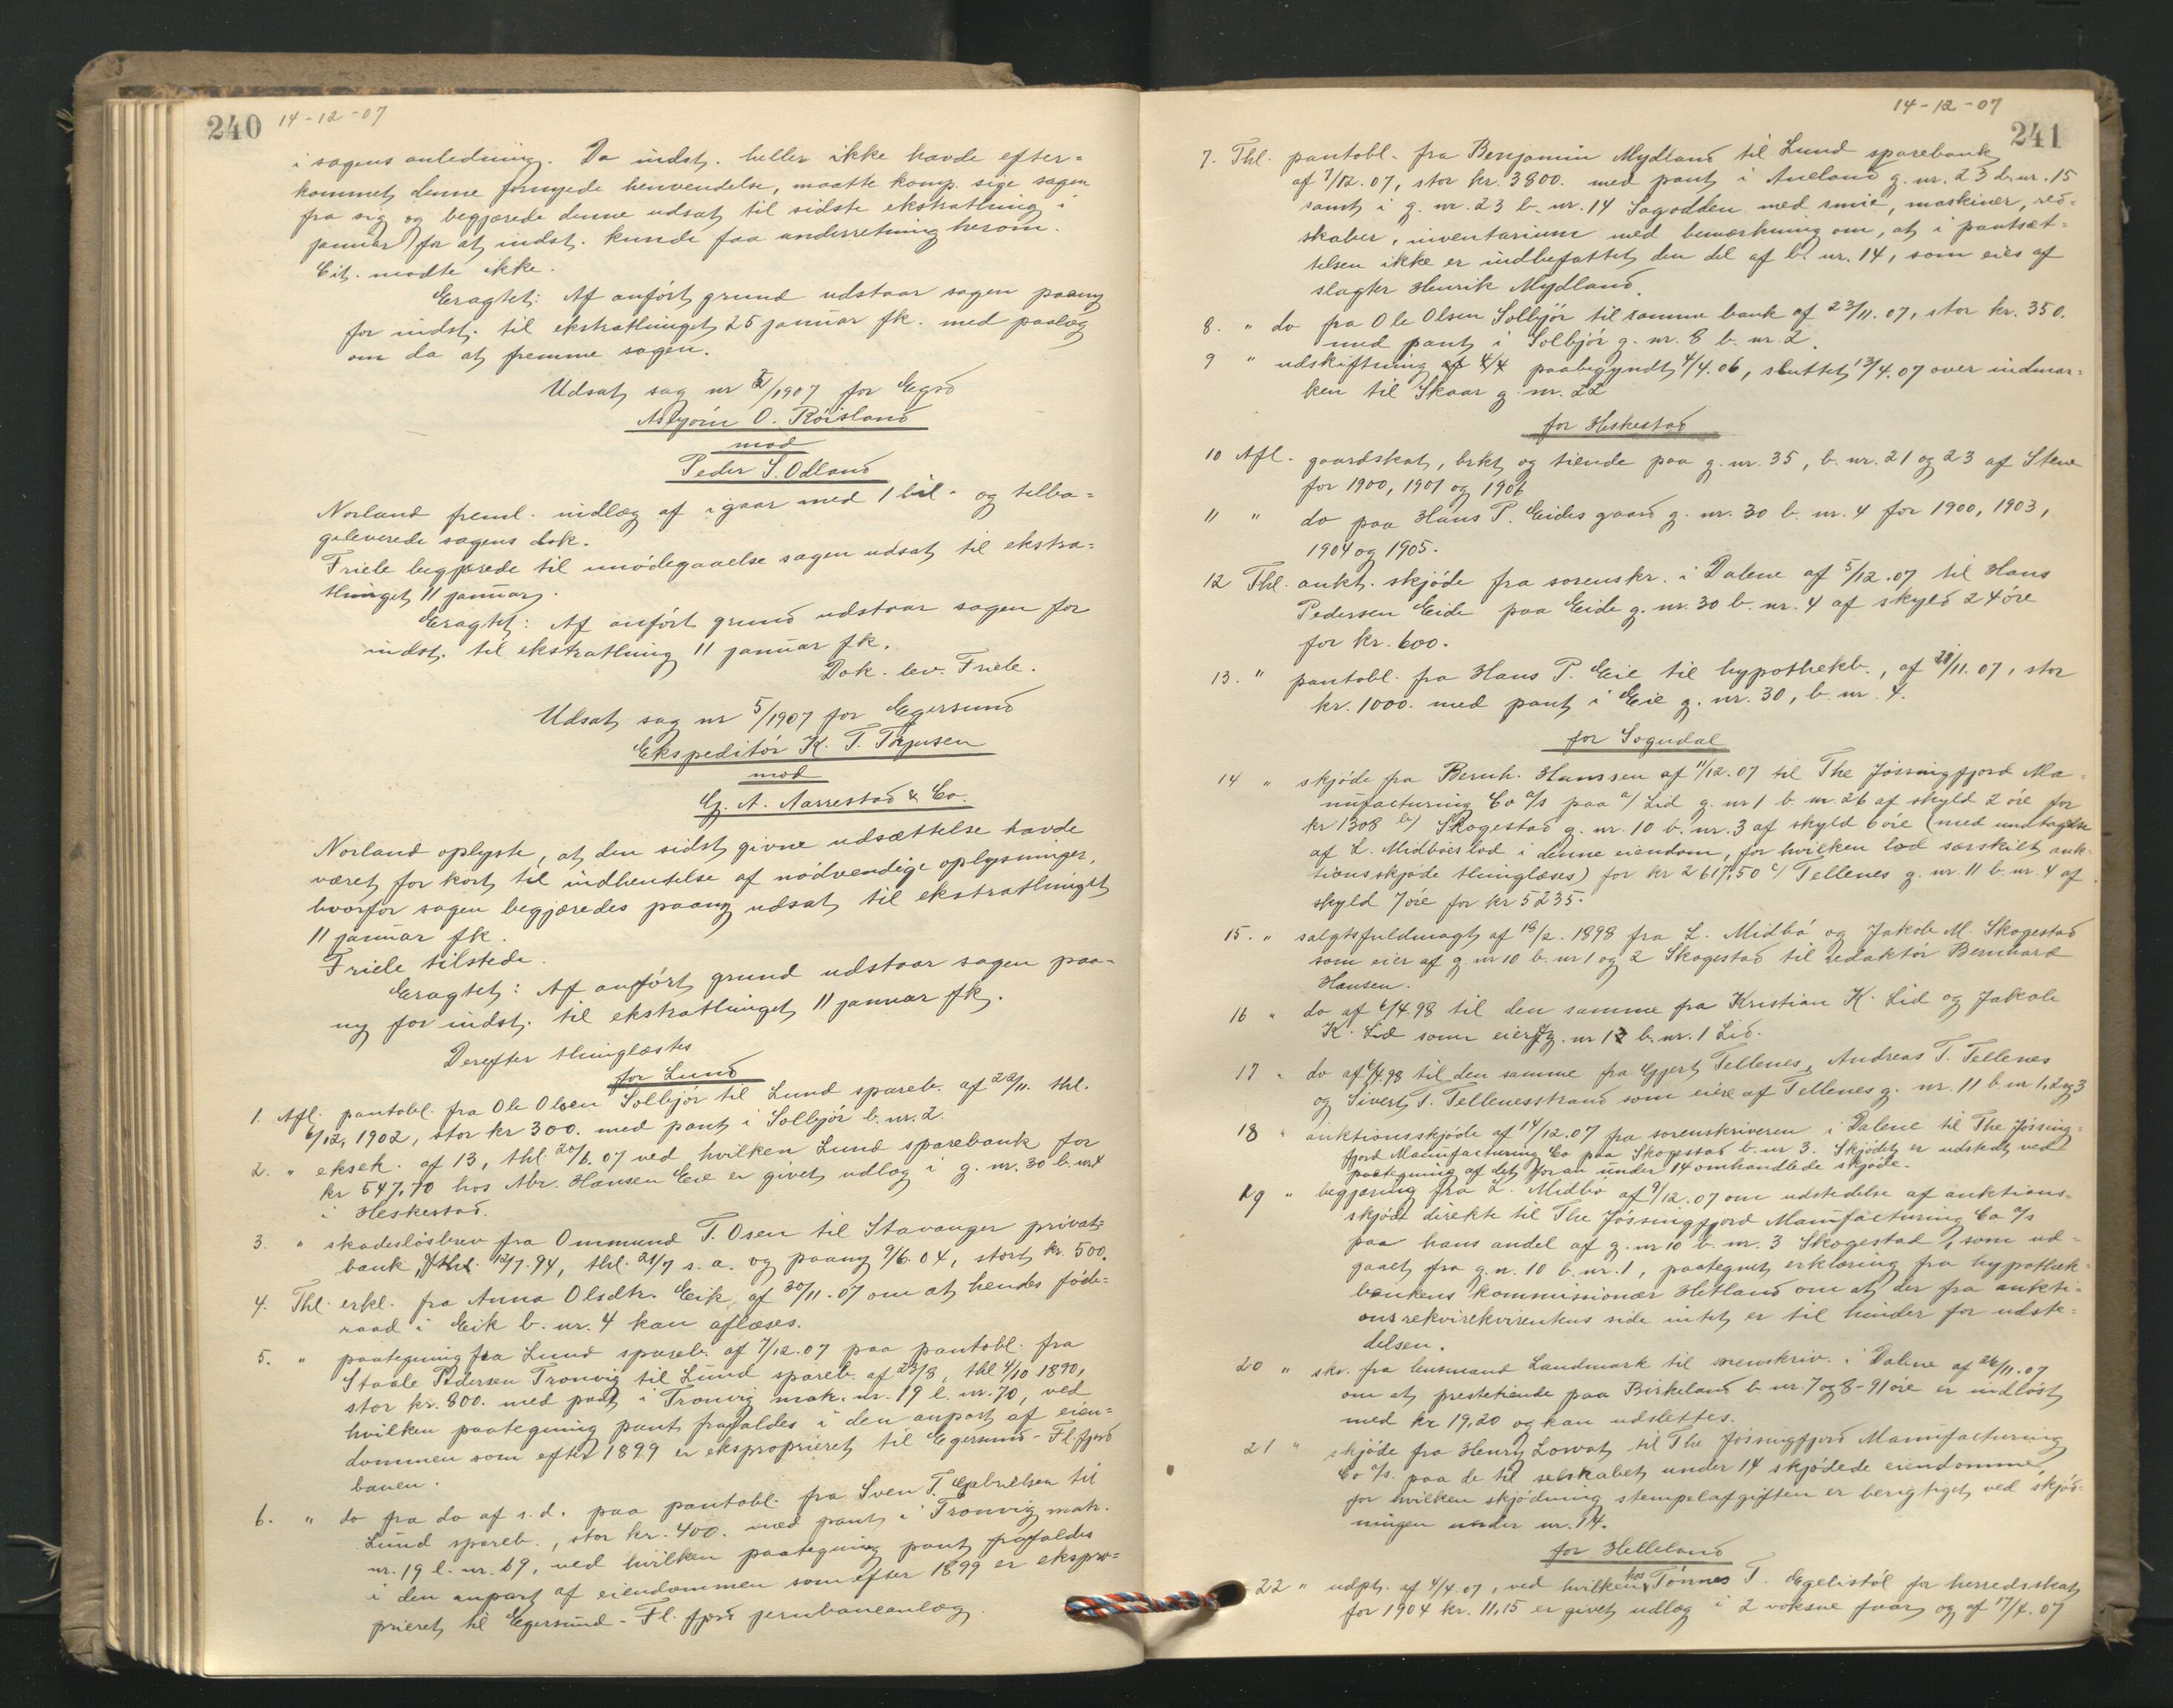 240 14-12-07
i sagens anledning. Da indst. heller ikke havde efter=
kommet denne fornyede henvendelse, maatte komp. sige sagen
fra sig og begjærede denne udsat til sidste ekstrathing i
januar for at indst. kunde faa underretning herom.
Cit. mødte ikke.
Eragtet: Af anført grund udstaar sagen paany
for indst. til ekstrathinget 25 januar fk. med paalæg
om da at fremme sagen.
Udsat sag nr /1907 for
Asbjørn O. Røisland
mod
Peder S. Odland
Norland freml. indlæg af igaar med 1 bil. og tilba=
geleverede sagens dok.
Friele begjærede til imødegaaelse sagen udsat til ekstra=
thinget 11 januar.
Eragtet: Af anført grund udstaar sagen for
indst. til ekstrathing 11 januar fk.
Dok. lev. Friele.
Udsat sag nr 5/1907 for Egersund
Ekspeditør K. T. Torjusen
mod
G. A. Aarrestad & Co.
Norland oplyste, at den sidst givne udsættelse havde
været for kort til indhentelse af nødvendige oplysninger,
hvorfor sagen begjæredes paany udsat til ekstrathinget
11 januar fk.
Friele tilstede.
Eragtet: Af anført grund udstaar sagen paa-
ny for indst. til ekstrathinget 11 januar fk.
Derefter thinglæstes
for Lund
1. Afl. pantobl. fra Ole Olsen Solbjør til Lund spareb. af 22/11. thl.
6/12, 1902, stor kr 300. med pant i Solbjør b. nr. 2.
2. " eksek. af 13, thl. 20/6. 07 ved hvilken Lund sparebank for
kr 547,70 hos Abr. Hansen Eie er givet udlæg i g. nr. 30 b. nr 4
i Heskestad.
3. " skadesløsbrev fra Ommund T. Osen til Stavanger privat=
bank, 12/7. 94, thl. 21/7 s. a. og paany 9/6. 04, stort kr. 500.
4. Thl. erkl. fra Anna Olsdtr. Eik af 30/11. 07 om at hendes føde-
raad i Eik b. nr. 4 kan aflæses.
5. " paategning fra Lund spareb. af 7/12. 07 paa pantobl. fra
Staale Pedersen Tronvig til Lund spareb. af 23/8, thl 4/10 1890,
stor kr. 800. med pant i Tronvig mak. nr. 19 l. nr. 70, ved
hvilken paategning pant frafaldes i den anpart af eien=
dommen som efter 1899 er eksproprieret til Egersund-Fl.fjord
banen.
6. " do fra do af s. d. paa pantobl. fra Sven T. Gabrielsen til
Lund spareb., stor kr. 400. med pant i Tronvig matr.
nr. 19 l. nr. 69, ved hvilken paategning pant frafaldes
i den anpart af eiendommen som efter 1899 er ekspro=
prieret til Egersund-Fl. fjord jernbaneanlæg.
14-12-07
241
7. Thl. pantobl. fra Benjamin Mydland til Lund sparebank
af 7/12. 07, stor kr. 3800. med pant i Aneland g. nr. 23 b. nr. 15
samt i g. nr. 23 b. nr. 14 Sagodden med smie, maskiner, red=
skaber, inventarium med bemærkning om, at i pantsæt=
telsen ikke er indbefattet den del af b. nr. 14, som eies af
slagter Henrik Mydland.
8. " do fra Ole Olsen Solbjør til samme bank af 23/11. 07, stor kr. 350.
med pant i Solbjør g. nr. 8 b. nr. 2.
9 " udskiftning paabegyndt 4/4. 06, sluttet 13/4. 07 over indmar=
ken til Skaar g. nr. 22
for Heskestad
10 Afl. gaardskat, brkt og tiende paa g. nr. 35, b. nr. 21 og 23 af Stene
for 1900, 1901 og 1906
11 " do paa Hans P. Eides gaard g. nr. 30 b. nr. 4 for 1900, 1903,
1904 og 1905.
12 Thl. aukt. skjøde fra sorenskr. i Dalene af 5/12. 07 til Hans
Pedersen Eide paa Eide g. nr. 30 b. nr. 4 af skyld 24 øre
for kr. 600.
13. " pantobl. fra Hans P. Eie til hypothekb., af 28/11. 07, stor
kr. 1000. med pant i Eie g. nr. 30, b. nr. 4.
for Sogndal
14 " skjøde fra Bernh. Hanssen af 11/12. 07 til The Jøssingfjord Ma=
nufacturing Co a/s paa a/ Lid g. nr 1 b. nr. 26 af skyld 2 øre for
kr 1308 b/ Skogestad g. nr. 10 b. nr. 3 af skyld 6 øre (med undtagelse
af L. Midbøes lod i denne eiendom, for hvilken lod særskilt auk-
tionsskjøde thinglæses) for kr 2617,50 c/ Tellenes g. nr. 11 b. nr. 4 af
skyld 7 øre for kr 5235.
15. " salgsfuldmagt af 18/2. 1898 fra L. Midbø og Jakob M. Skogestad
som eier af g. nr 10 b. nr 1 og 2 Skogestad til redaktør Bernhard
Hansen.
16 " do af 6/4.98 til den samme fra Kristian K. Lid og Jakob
K. Lid som eier g. nr 1 b. nr. 1 Lid.
17 " do af 6/4.98 til den samme fra Gjert Tellenes, Andreas T. Tellenes
og Sivert T. Tellenesstrand som eiere af Tellenes g. nr. 11 b. nr 1, 2 og 3
18 " auktionsskjøde af 14/12. 07 fra sorenskriveren i Dalene til The Jøssing=
fjord Manufacturing Co paa Skogestad b. nr 3. Skjødet er udstedt ved
paategning af det foran under 14 omhandlede skjøde.
19 " begjæring fra L. Midbø af 9/12. 07 om udstedelse af auktions=
skjøde direkte til The Jøssingfjord Manufacturing Co a/s
paa hans andel af g. nr 10 b. nr. 3 Skogestad, som ud=
gaaet fra g. n. 10 b. nr. 1, paategnet erklæring fra hypothek=
bankens kommissionær Hetland om at der fra aukti=
onsrekvirekvirentens side intet er til hinder for udste=
delsen.
20 " skr. fra lensmand Landmark til sorenskriv. i Dalene af 26/11. 07
om at prestetiende paa Birkeland b. nr. 7 og 8 - 91 øre er indløst
med kr 19,20 og kan udslettes.
21 " skjøde fra Henry Lowat til The Jøssingfjord Manufacturing
Co a/s. paa de til selskabet under 14 skjødede eiendomme
for hvilken skjødning stempelafgiften er berigtiget ved skjød=
ningen under nr. 14.
for Helleland
22 " udpt. af 4/4. 07, ved hvilken hos Tønnes T. Egelistøl for herredsskat
for 1904 kr. 11,15 er givet udlæg i 2 voksne faar og af 17/4. 07